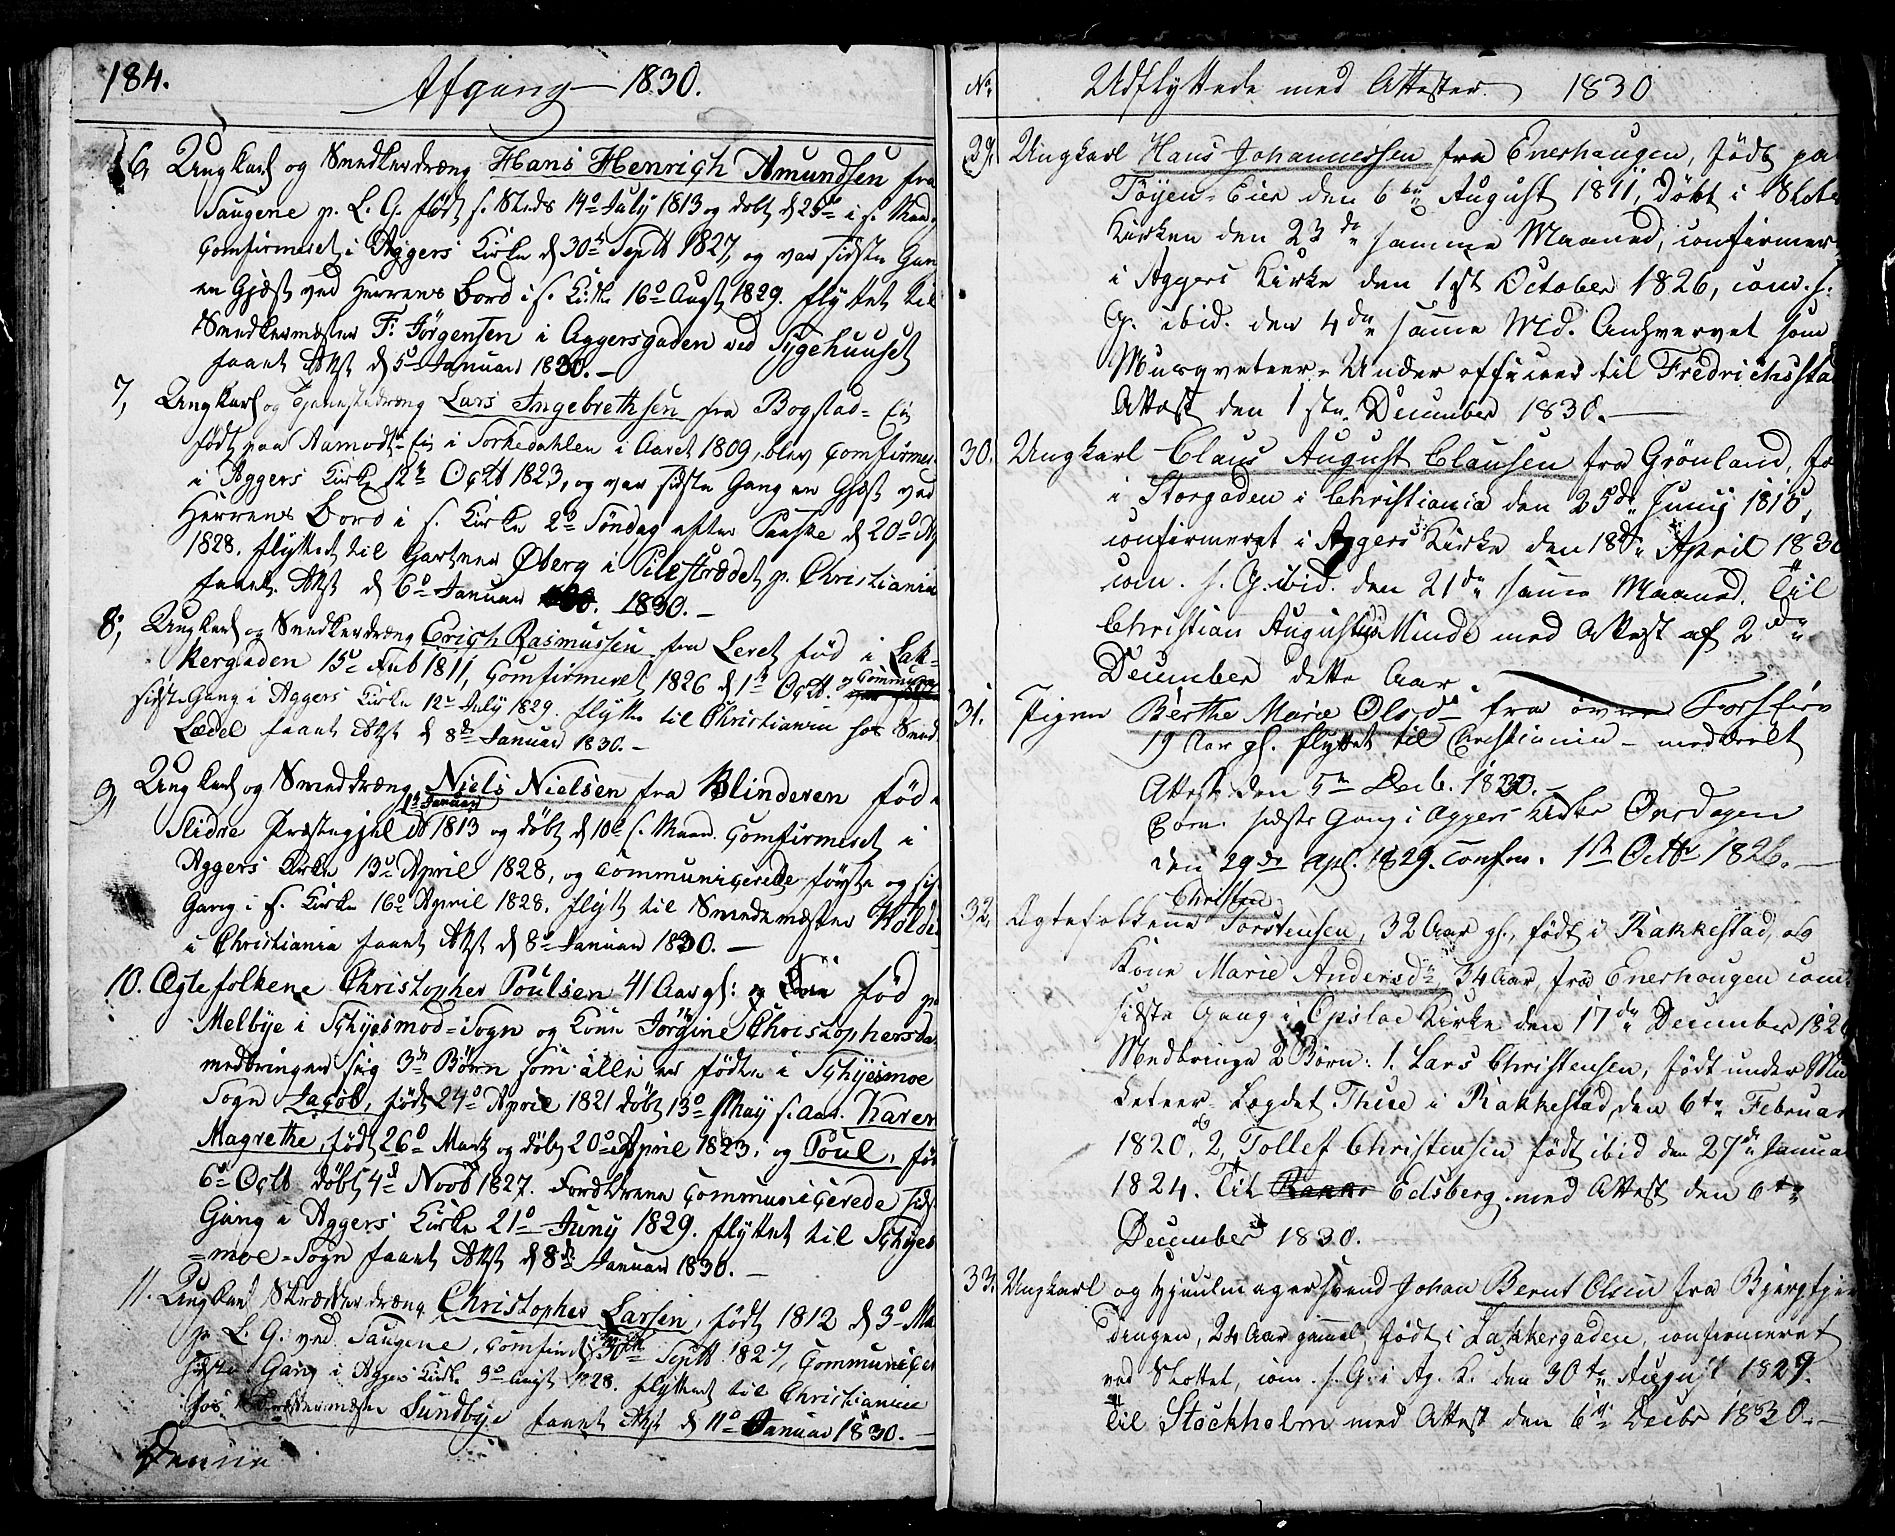 184.
Afgang 1830.
6, Ungkarl og Snedkerdræng Hans Henrich Amundsen fra
Saugene p. L. G. født s. Steds 14o July 1813 og døbt d 29o i s. Maan.
Comfirmeret i Aggers Kirke d 30te Septb 1827, og var sidste Gan
en Gjæst ved Herrens Bord i s. Kirke 16o Augt 1829. flyttet til
Snedkermæster F: Jörgensen i Aggersgaden ved Sygehuuset
faaet Attst d 5o Januar 1830. –
7, Ungkarl og Tjenestedræng Lars Ingebrethsen fra Bogstad-Ei
født paa Aamodt-Ei i Sørkedahlen i Aaret 1809, blev Comfirmer
i Aggers Kirke 12te Octb 1823, og var sidste Gang en Gjæst ved
Herrens Bord i s. Kirke 2o Söndag efter Paaske d 20o Ap
1828. flyttet til Gartner Øberg i Pilestrædet p. Christiania
faaet Attst d 6o Januar 1830. –
8, Ungkarl og Snedkerdræng Erich Rasmussen fra Leret fød i Lak-
kergaden 15o Feb 1811, Comfirmeret 1826 d 1te Octb. og Commun
sidste Gang i Aggers Kirke 12te July 1829 flytte til Christiania hos Sned
Lædel faaet Attst d 8de Januar 1830. –
9, Ungkarl og Smeddræng Niels Nielsen fra Blinderen fød i
Slidre Præstegjel d 1te Januar 1813 og døbt d 10o s. Maan. Comfirmeret i
Aggers Kirke 13o April 1828, og Communicerede første og sis
Gang i s. Kirke 16o April 1828. flytt til Smedemæster Holde
i Christiania faaet Attst d 8o Januar 1830. –
10. Ægtefolkene Christopher Poulsen 41 Aar gl: og fød p
Melbye i Schyesmoe-Sogn og Kone Jörgine Christophersda
medbringer sig 3de Børn som alle er födte i Schyesmoe
Sogn Jacob, født 24o April 1821 døbt 13o May s. Aar. Karen
Magrethe, født 26o Marts og døbt 20o April 1823, og Poul, fø
6te Octb døbt 4d Novb 1827. Fordldrene Communicerede sids
Gang i Aggers Kirke 21o Juny 1829. flyttet til Schyes
=moe-Sogn faaet Attst d 8de Januar 1830. –
11. Ungkarl Skrædderdræng Christopher Larsen, født 1812 d 3o Ma
p. L. G. ved Saugene, Comfirmd 30te Septb 1827, Communicer
sidste Gang i Aggers Kirke 3o Augst 1828. flyttet til Christiania
hos Skræddermæster Sundbye faaet Attst d 11o Januar 1830. –
Denne
No.
Udflyttede med Attester 1830
29. Ungkarl Hans Johannessen fra Enerhaugen, født paa
Töyen-Eier den 6te August 1811, döbt i Slots
Kirken den 23de samme Maaned, confirmer
i Aggers Kirke den 1ste October 1826, com. s.
G. ibid. den 4de samme Md. Anhvervet som
Musqveteer-Underofficeer til Fredrichsstad
Attest den 1ste December 1830. –
30. Ungkarl Claus August Clausen fra Grönland, fø
i Storgaden i Christiania den 25de Junij 1815,
confirmeret i Aggers Kirke den 18de April 1830
com. s. G. ibid. den 21de samme Maaned. Til
Christian Augusts Minde med Attest af 2de
December dette Aar.
31. Pigen Berthe Marie Olsd. fra övre Fossfire
19 Aar gl. flyttet til Christiania – meddeelt
Attest den 5te Decb. 1830. –
Com. sidste Gang i Aggers Kirke Onsdagen
den 29de Apl. 1829. Confrm. 1te Octbr 1826. –
32. Ægtefolkene Christen Torstensen, 32 Aar gl., født i Rakkestad, og
Kone Marie Andersd. 34 Aar, fra Enerhaugen com.
sidste Gang i Opsloe Kirke den 17de December 1826
Medbringe 2 Børn: 1. Lars Christensen, født under Mu
keteer-Logdet Thue i Rakkestad, den 6te Februar
1820, og 2, Tollef Christensen født ibid den 27de Janua
1824. Til Rakke Edsberg med Attest den 6te
December 1830.
33. Ungkarl og Hjuulmagersvend Johan Bernt Olsen fra Bjergfjer
dingen, 24 Aar gammel født i Lakkergaden, confirmeret
ved Slottet, com. s. G. i Ag. K. den 30te August 1829.
Til Stockholm med Attest den 6te Decbr 1830. –